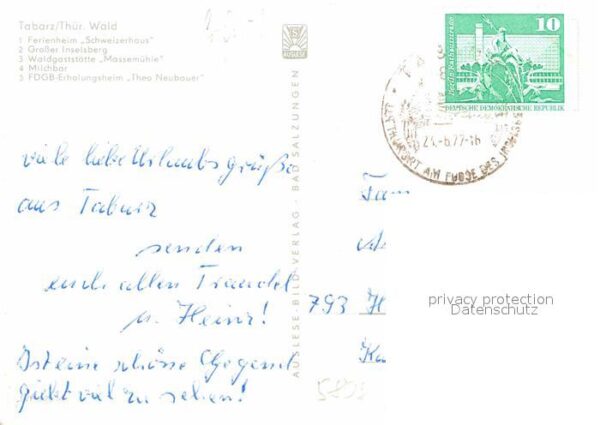 Tabarz/Thür. Wald
1 Ferienheim „Schweizerhaus"
2 Großer Inselsberg
3 Waldgaststätte „Massemühle"
4 Milchbar
5 FDGB-Erholungsheim „Theo Neubauer"
viele liebe Urlaubsgrüße
aus Tabarz
senden
euch allen Traudel
u. Heinz!
Ist eine schöne Gegend
gibt viel zu sehen!
AUSLESE-BILD-VERLAG - BAD SALZUNGEN
10
DEUTSCHE DEMOKRATISCHE REPUBLIK
-6.77-16
LUFTKURORT AM FUSSE DES
Fam
793 H
Ka
privacy protection
Datenschutz